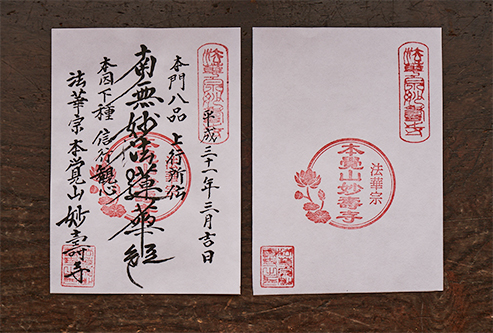 平成三十一年三月吉日
本門八品 上行所伝
南無妙法蓮華経
本因下種 信行観心
法華宗 本覚山 妙壽寺
法華宗妙壽寺
法華宗
本覺山妙壽寺